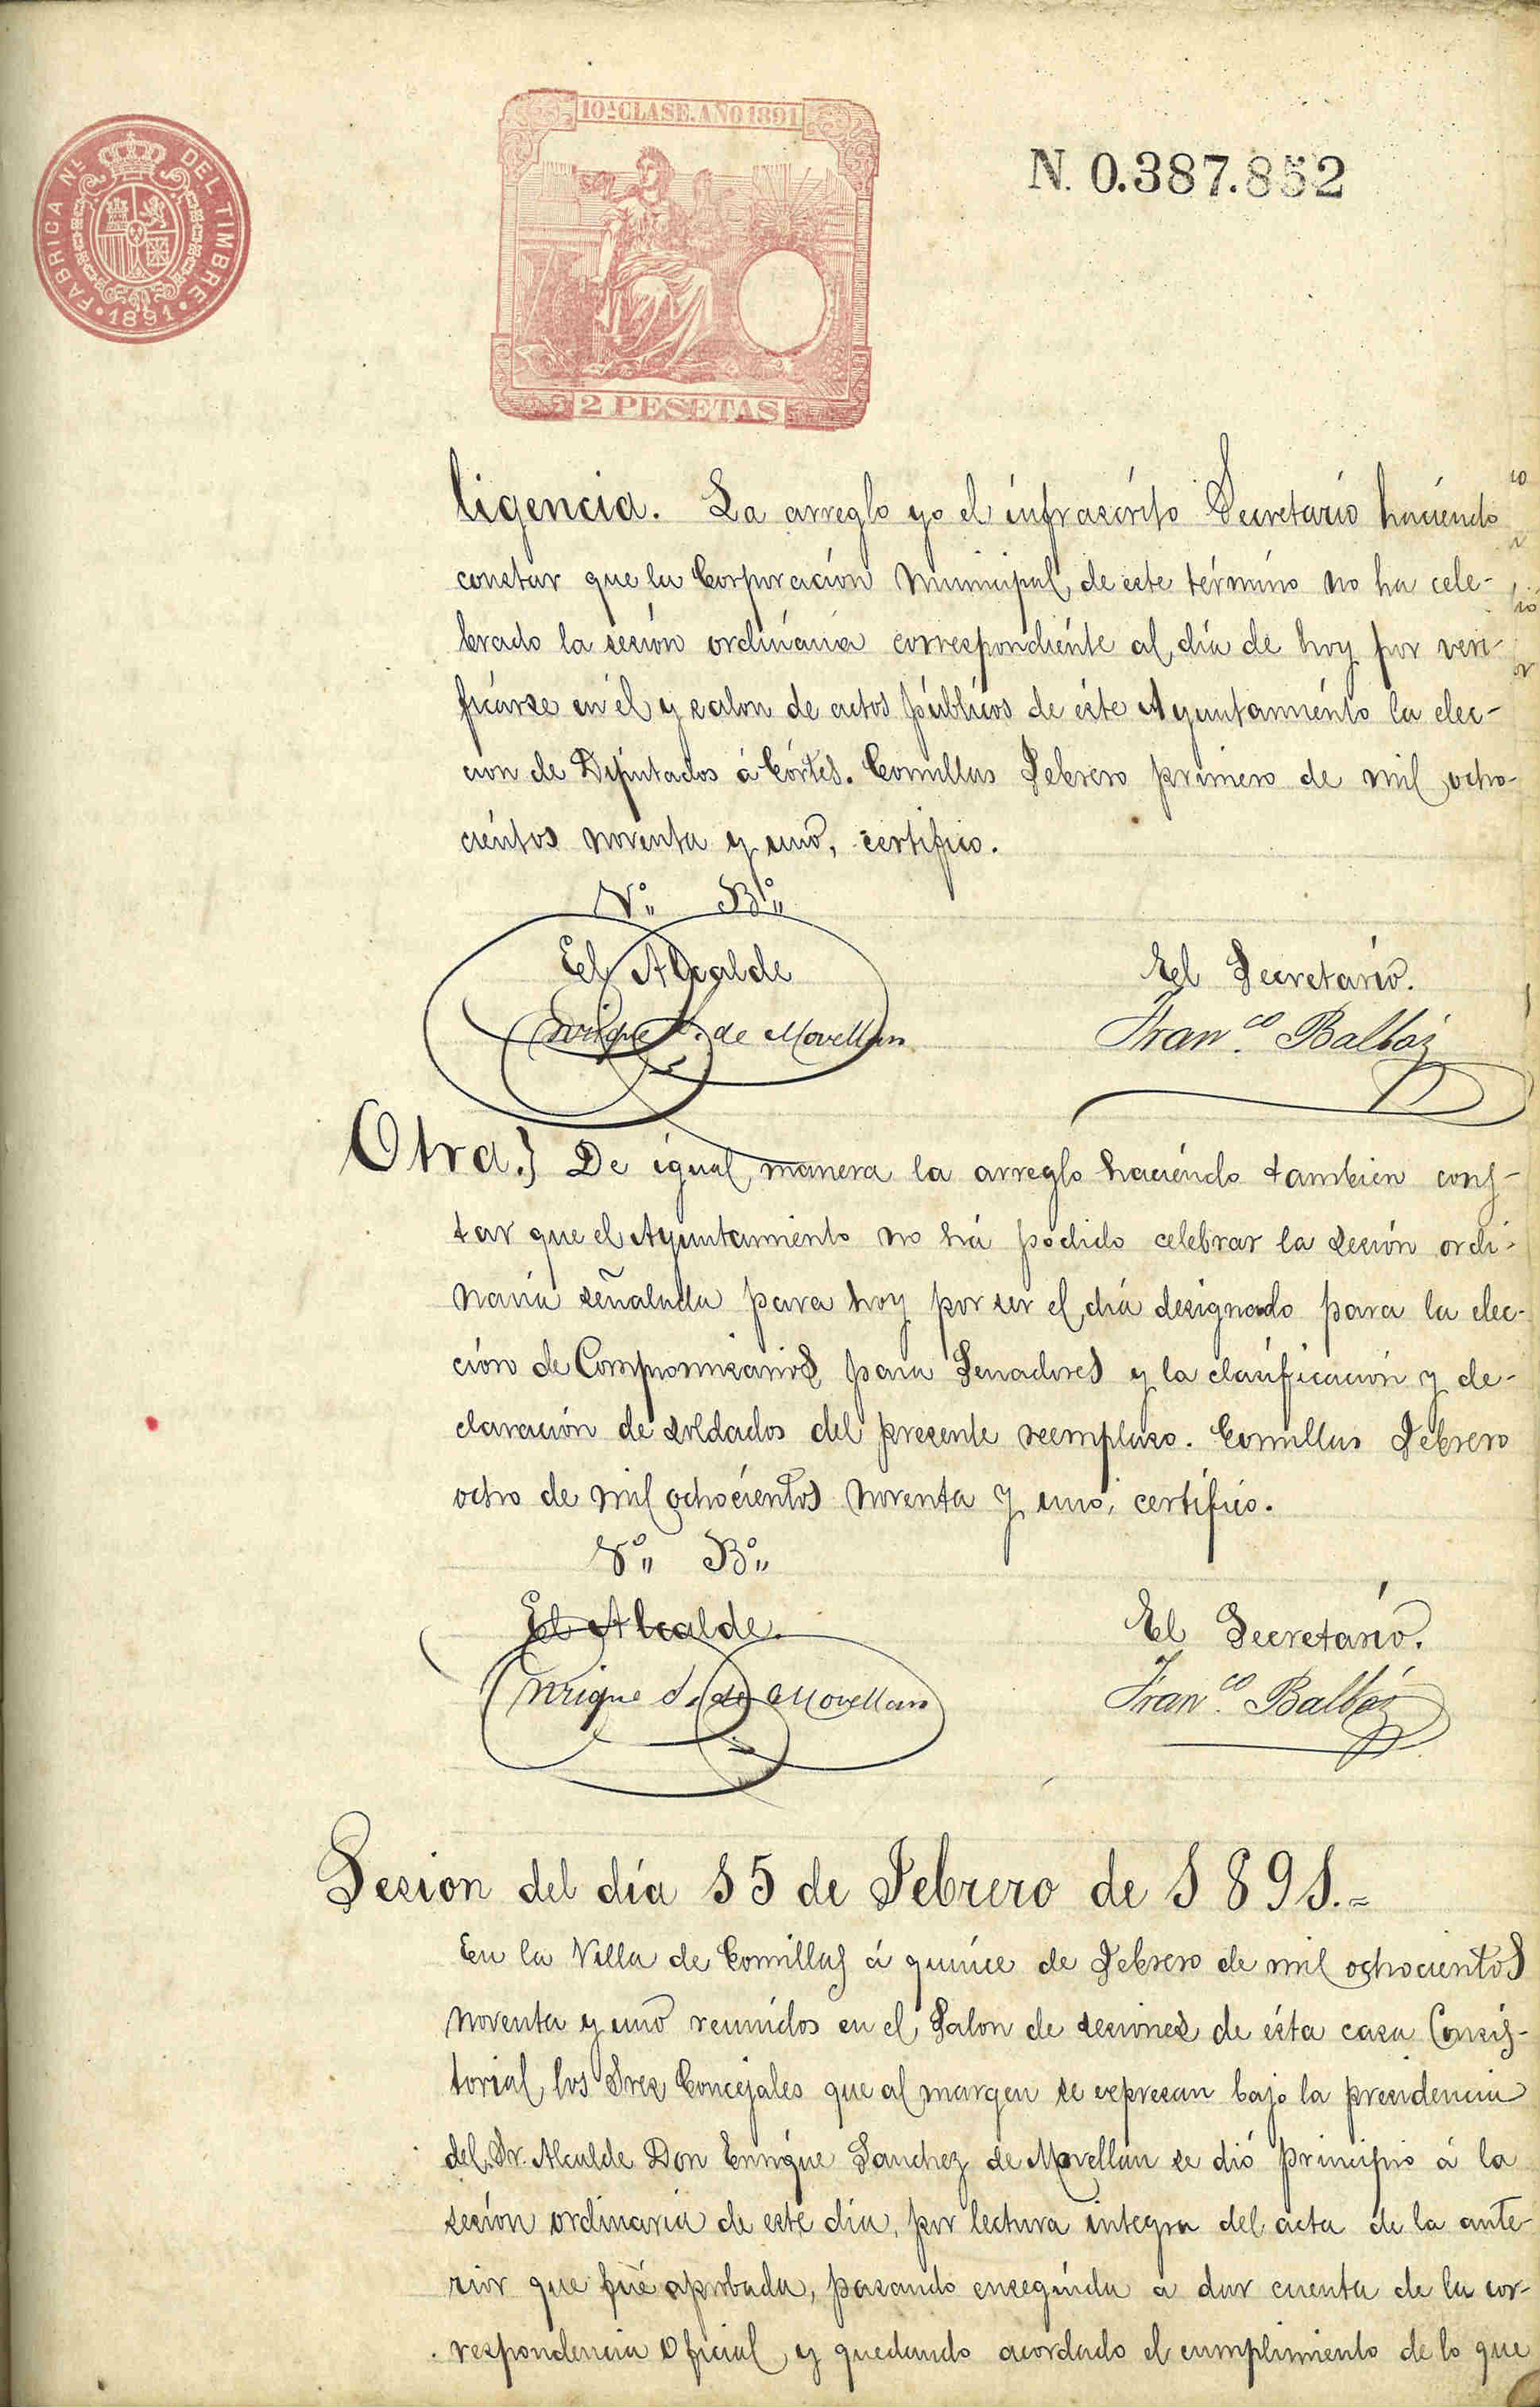 FABRICA NL DEL TIMBRE · 1891 ·
10ª CLASE. AÑO 1891
2 PESETAS
N. 0.387.852
ligencia. La arreglo yo el infrascrito Secretario haciendo
constar que la Corporación Municipal de este término no ha cele-
brado la sesión ordinaria correspondiente al dia de hoy por veri-
ficarse en él y salon de actos públicos de éste Ayuntamiento la elec-
cion de Diputados á Córtes. Comillas Febrero primero de mil ocho-
cientos noventa y uno, certifico.
Vº Bº
El Alcalde
Enrique S. de Movellan
El Secretario.
Franco. Balbás
Otra.} De igual manera la arreglo haciendo tambien cons-
tar que el Ayuntamiento no há podido celebrar la sesión ordi-
naria señalada para hoy por ser el dia designado para la elec-
ción de Compromisarios para Senadores y la clasificación y de-
claración de soldados del presente reemplazo. Comillas Febrero
ocho de mil ochocientos noventa y uno, certifico.
Vº Bº
El Alcalde.
Enrique S. de Movellan
El Secretario.
Franco. Balbás
Sesion del día 15 de Febrero de 1891.=
En la Villa de Comillas á quince de Febrero de mil ochocientos
noventa y uno reunidos en el Salon de sesiones de ésta casa Consis-
torial los Sres Concejales que al margen se expresan bajo la presidencia
del Sr. Alcalde Don Enrique Sanchez de Movellan se dió principio á la
sesión ordinaria de este dia, por lectura integra del acta de la ante-
rior que fué aprobada, pasando enseguida a dar cuenta de la cor-
respondencia Oficial y quedando acordado el cumplimiento de lo que